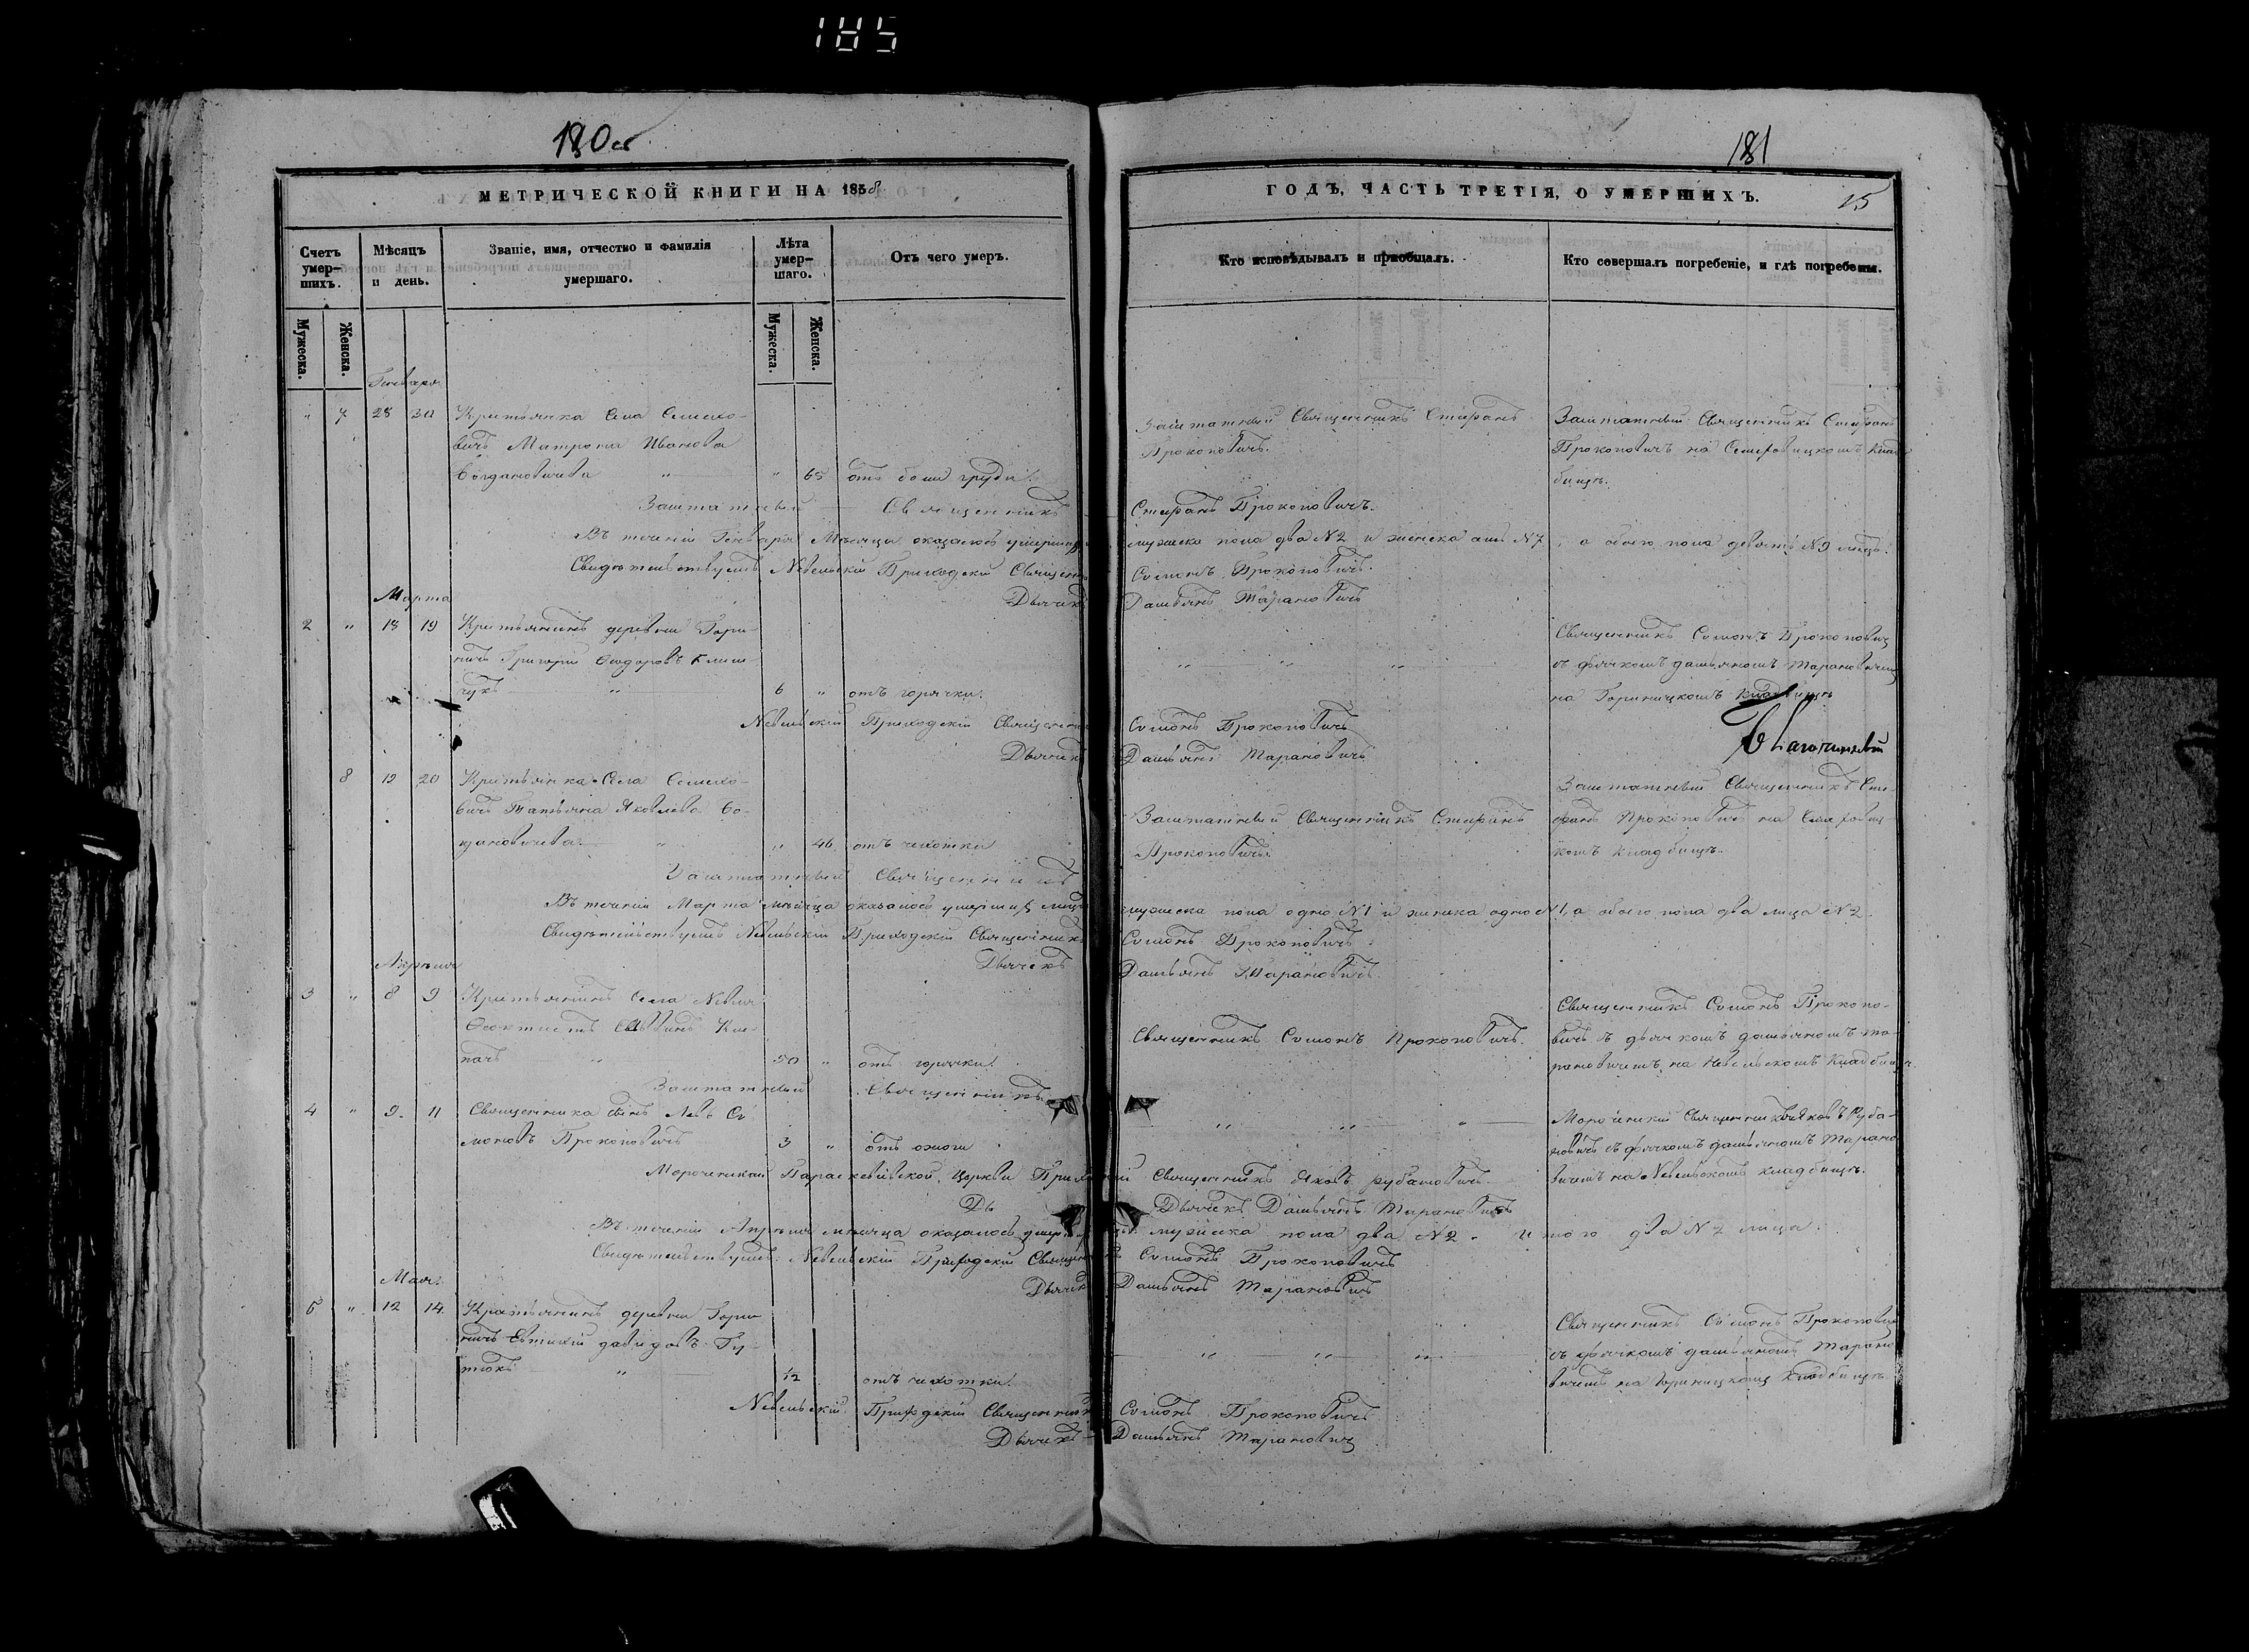 185
180 об
181
МЕТРИЧЕСКОЙ КНИГИ НА 1858
ГОДЪ, ЧАСТЬ ТРЕТІЯ, О УМЕРШИХЪ.
15
Счетъ умер-
шихъ.
Мѣсяцъ
и день.
Званіе, имя, отчество и фамилія
умершаго.
Лѣта
умер-
шаго.
Отъ чего умеръ.
Кто исповѣдывалъ и пріобщалъ.
Кто совершалъ погребеніе, и гдѣ погребены.
Мужеска.
Женска.
Мужеска.
Женска.
Генваря
" 7 28 30 Крестьянка Села Семехо-
вичъ Матрона Иванова
Богдановичева " " 65 отъ боли груди.
Заштатный Священникъ Стефанъ
Прокоповичъ.
Заштатный Священникъ Стефанъ
Прокоповичъ на Семеховицкомъ Клад
бищѣ.
Заштатный Священникъ Стефанъ Прокоповичъ.
Въ теченіи Генваря Мѣсяца оказалось умершихъ мужеска пола два №2 и женска №7, а обоего пола девять №9 лицъ.
Свидѣтельствуетъ Невельскій Приходскій Священникъ Симонъ Прокоповичъ.
Дьячекъ Дамьянъ Тарановичъ
Марта
2 " 18 19 Крестьянинъ деревни Гори-
ничъ Григорій Феодоровъ Климчукъ
" 6 " отъ горячки.
" " "
Священникъ Симонъ Прокоповичъ
съ дьячкомъ дамьяномъ Тарановичемъ
на Гориницкомъ кладбищѣ
Невельскій Приходскій Священникъ Симонъ Прокоповичъ
Благочинный
Дьячекъ Дамьянъ Тарановичъ
8 19 20 Крестьянка Села Семехо-
вичъ Татьяна Яковлева Бо-
гдановичева " " 46 отъ чихотки
Заштатный Священникъ Стефанъ
Прокоповичъ.
Заштатный Священникъ Сте-
фанъ Прокоповичъ на Семеховиц-
комъ кладбищѣ.
Заштатный Священникъ
Въ теченіи Марта мѣсяца оказалось умершихъ лицъ мужеска пола одно №1 и женска одно №1, а обоего пола два лица №2.
Свидѣтельствуетъ Невельскій Приходскій Священникъ Симонъ Прокоповичъ
Дьячекъ Дамьянъ Тарановичъ
Апрѣля
3 " 8 9 Крестьянинъ Села Невля
Феоктистъ
" 50 " отъ горячки.
Священникъ Симонъ Прокоповичъ.
Священникъ Симонъ Прокопо-
вичъ съ дьячкомъ дамьяномъ Та-
рановичемъ на Невельскомъ Кладбищѣ.
Заштатный Священникъ
4 " 9 11 Священника сынъ Левъ Си
моновъ Прокоповичъ 3 " отъ
" " "
Мороченскій Священникъ Яковъ Руба-
новичъ съ дьячкомъ дамьяномъ Тарано
вичемъ на Невельскомъ кладбищѣ.
Мороченской Параскевійской Церкви Приходскій Священникъ Яковъ Рубановичъ.
Дьячекъ Дамьянъ Тарановичъ
Въ теченіи Апрѣля мѣсяца оказалось умершихъ мужеска пола два №2. Итого два №2 лица.
Свидѣтельствуетъ Невельскій Приходскій Священникъ Симонъ Прокоповичъ
Дьячекъ Дамьянъ Тарановичъ
Мая.
5 " 12 14 Крестьянинъ деревни Гори
ничъ Евтихій давидовъ
" 1/2 отъ чихотки.
" " "
Священникъ Симонъ Прокоповичъ
съ дьячкомъ дамьяномъ Тарано
вичемъ на Гориницкомъ Кладбищѣ
Невельскій Приходскій Священникъ Симонъ Прокоповичъ
Дьячекъ Дамьянъ Тарановичъ